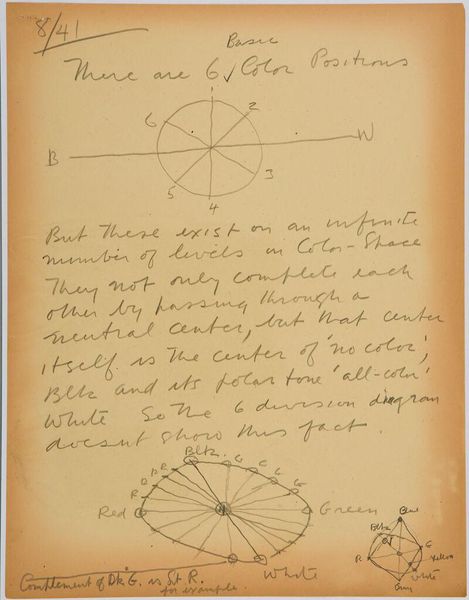 8/41
Basic
There are 6 Color Positions
1
6
2
B
W
5
3
4
But these exist on an infinite
number of levels in Color-Space
They not only complete each
other by passing through a
neutral center, but that center
itself is the center of 'no color',
Blk and its polar tone 'all-color'
White So the 6 division diagram
doesnt show this fact.
Blk.
R R R G G G G
Red
Green
White
Complement of Dk G. is Lt R.
for example.
Blue
Blk
R
G
Yellow
White